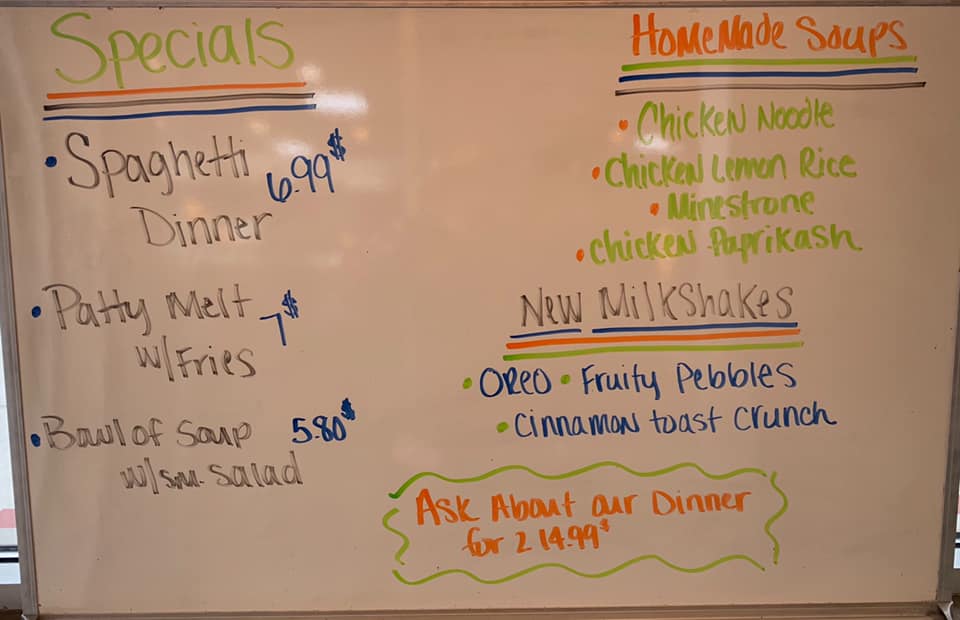 Specials
• Spaghetti 6.99$
Dinner
• Patty Melt 7$
w/Fries
• Bowl of Soup 5.80$
w/sm. Salad
HomeMade Soups
• Chicken Noodle
• Chicken Lemon Rice
• Minestrone
• Chicken Paprikash
New Milkshakes
• OREO • Fruity Pebbles
• Cinnamon toast Crunch
Ask About our Dinner
for 2 14.99$